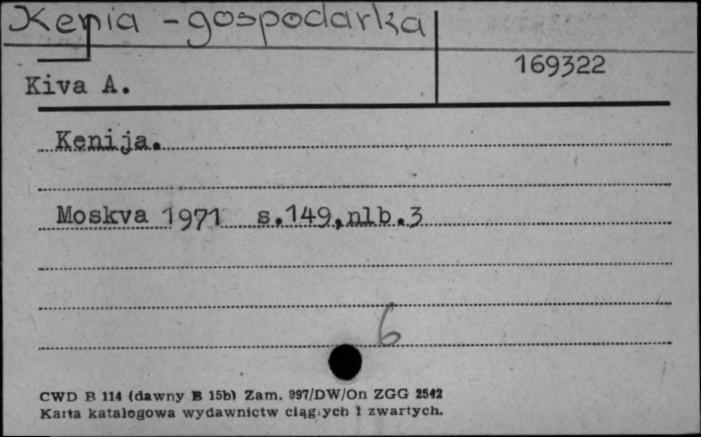 Kenia - gospodarka
169322
Kiva A.
Kenija.
Moskva 1971 s.149,nlb.3
6
CWD B 114 (dawny B 15b) Zam. 997/DW/On ZGG 2542
Karta katalogowa wydawnictw ciągłych i zwartych.